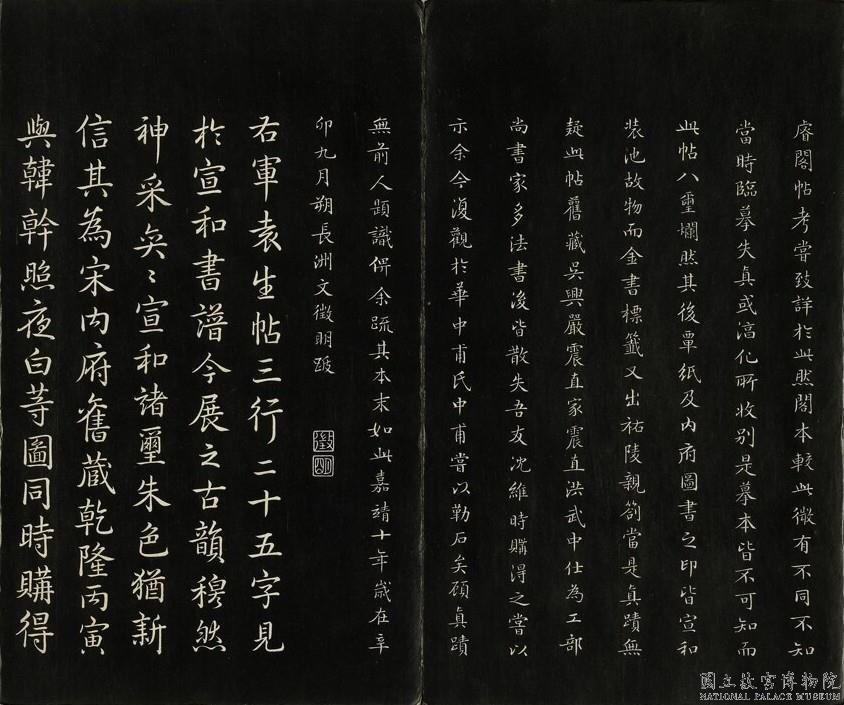 睿閣帖考嘗致詳於此然閣本較此微有不同不知
當時臨摹失真或淳化所收别是摹本皆不可知而
此帖八璽爛然其後覃紙及内府圖書之印皆宣和
裝池故物而金書標籤又出祐陵親劄當是真蹟無
疑此帖舊藏吳興嚴震直家震直洪武中仕為工部
尚書家多法書後皆散失吾友沈維時購得之嘗以
示余今復觀於華中甫氏中甫嘗以勒石矣顧真蹟
無前人題識俾余疏其本末如此嘉靖十年歲在辛
卯九月朔長洲文徵明跋
徵明
右軍袁生帖三行二十五字見
於宣和書譜今展之古韻穆然
神采奕〻宣和諸璽朱色猶新
信其為宋内府舊藏乾隆丙寅
與韓幹照夜白等圖同時購得
國立故宮博物院
NATIONAL PALACE MUSEUM